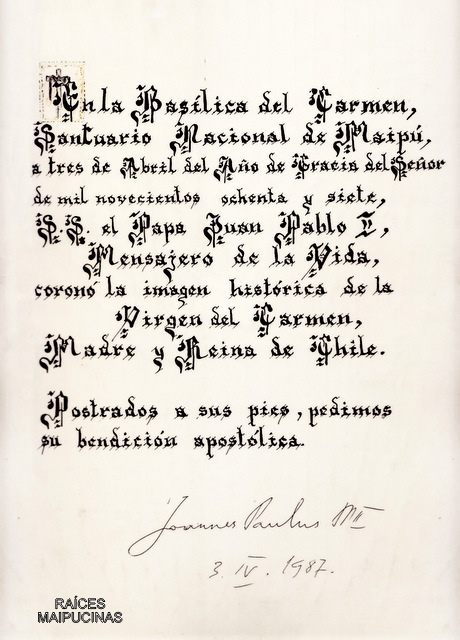 En la Basílica del Carmen,
Santuario Nacional de Maipú,
a tres de Abril del Año de Gracia del Señor
de mil novecientos ochenta y siete,
S.S. el Papa Juan Pablo II,
Mensajero de la Vida,
coronó la imagen histórica de la
Virgen del Carmen,
Madre y Reina de Chile.
Postrados a sus pies, pedimos
su bendición apostólica.
Joannes Paulus PP II
3. IV. 1987.
RAÍCES
MAIPUCINAS